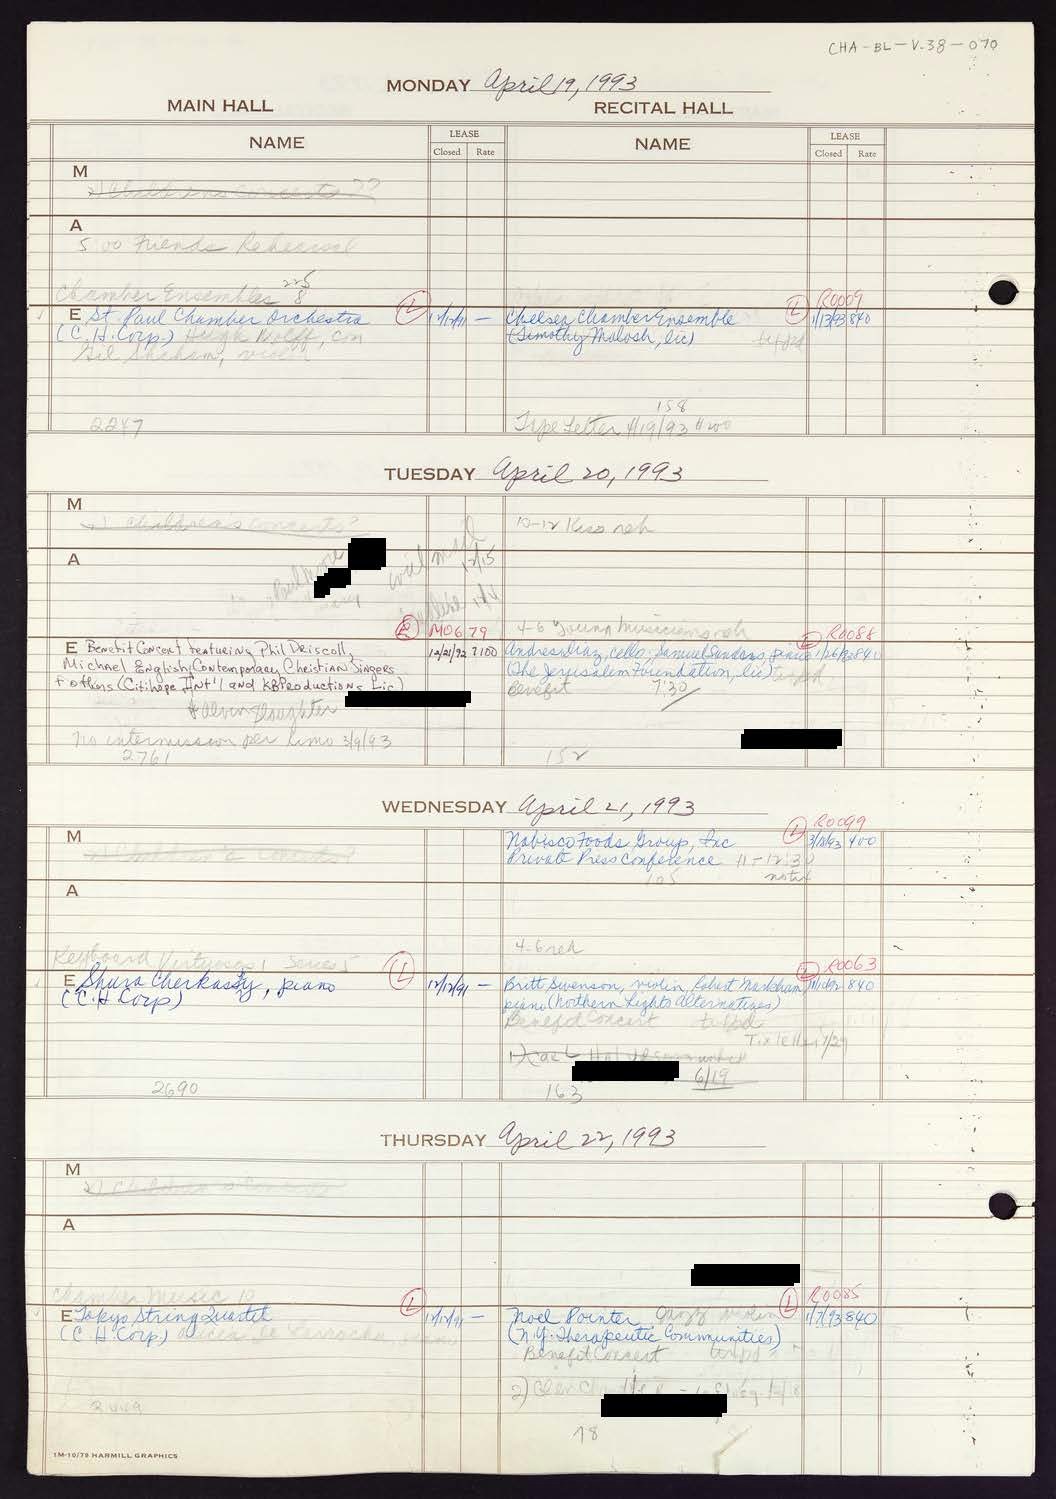 CHA-BL-V-38-070
MONDAY April 19, 1993
MAIN HALL
RECITAL HALL
NAME
LEASE
Closed Rate
NAME
LEASE
Closed Rate
M
2) Childrens Concerts ??
A
5 00 Friends Rehearsal
Chamber Ensembles 8
225
E St. Paul Chamber Orchestra
L
12/12/91 —
(C.H. Corp.) Hugh Wolff, con
Gil Shaham, violin
2247
R0009
Chelsea Chamber Ensemble
L
1/13/93 840
(Timothy Malosh, lic)
158
Type Letter 1/19/93 #200
TUESDAY April 20, 1993
M
Children's Concerts?
10-12 Kiss reh
A
will mail
12/15
L
M0679
4-6 Young Musicians reh
L
R0088
E Benefit Concert featuring Phil Driscoll,
12/21/92 7100
Michael English, Contemporary Christian Singers
& others (Citihope Int'l and KB Productions, Lic)
& Alvin Slaughter
No intermission per Limo 3/9/93
2761
Andres Diaz, cello - Samuel Sanders, piano
1/26/93 840
(The Jerusalem Foundation, lic)
Benefit 7:30
152
WEDNESDAY April 21, 1993
M
Children's Concerts?
L
R0099
Nabisco Foods Group, Inc
3/18/93 400
Private Press Conference 11-12:30
no tix
105
A
4-6 reh
Keyboard Virtuosos I Series 5
L
E Shura Cherkassky, piano
12/12/91 —
(C.H Corp)
2690
L
R0063
Britt Swenson, violin, Robert Markham,
840
piano (Northern Lights Alternatives)
Benefit Concert
Tix letter 1/29
6/19
163
THURSDAY April 22, 1993
M
2) Children's Concerts
A
Chamber Music 10
L
E Tokyo String Quartet
12/12/91 —
(C H Corp) Alicia de Larrocha, piano
L
R0085
Noel Pointer jazz violin
1/7/93 840
(N.Y. Therapeutic Communities)
Benefit Concert
2)
78
1M-10/79 HARMILL GRAPHICS